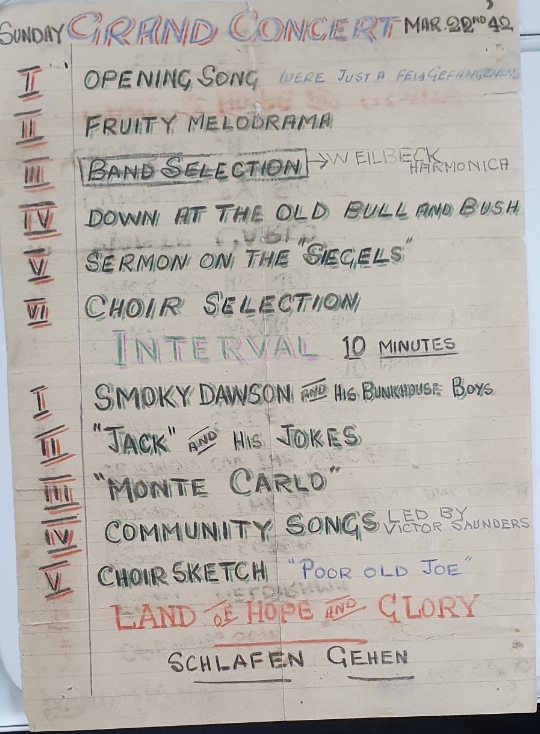 SUNDAY GRAND CONCERT MAR. 22ND 42
I OPENING SONG WERE JUST A FEW GEFANGENEN
II FRUITY MELODRAMA
III BAND SELECTION → W EILBECK HARMONICA
IV DOWN AT THE OLD BULL AND BUSH
V SERMON ON THE "SIEGELS"
VI CHOIR SELECTION
INTERVAL 10 MINUTES
I SMOKY DAWSON AND HIS BUNKHOUSE BOYS
II "JACK" AND HIS JOKES
III "MONTE CARLO"
IV COMMUNITY SONGS LED BY VICTOR SAUNDERS
V CHOIR SKETCH "POOR OLD JOE"
LAND OF HOPE AND GLORY
SCHLAFEN GEHEN